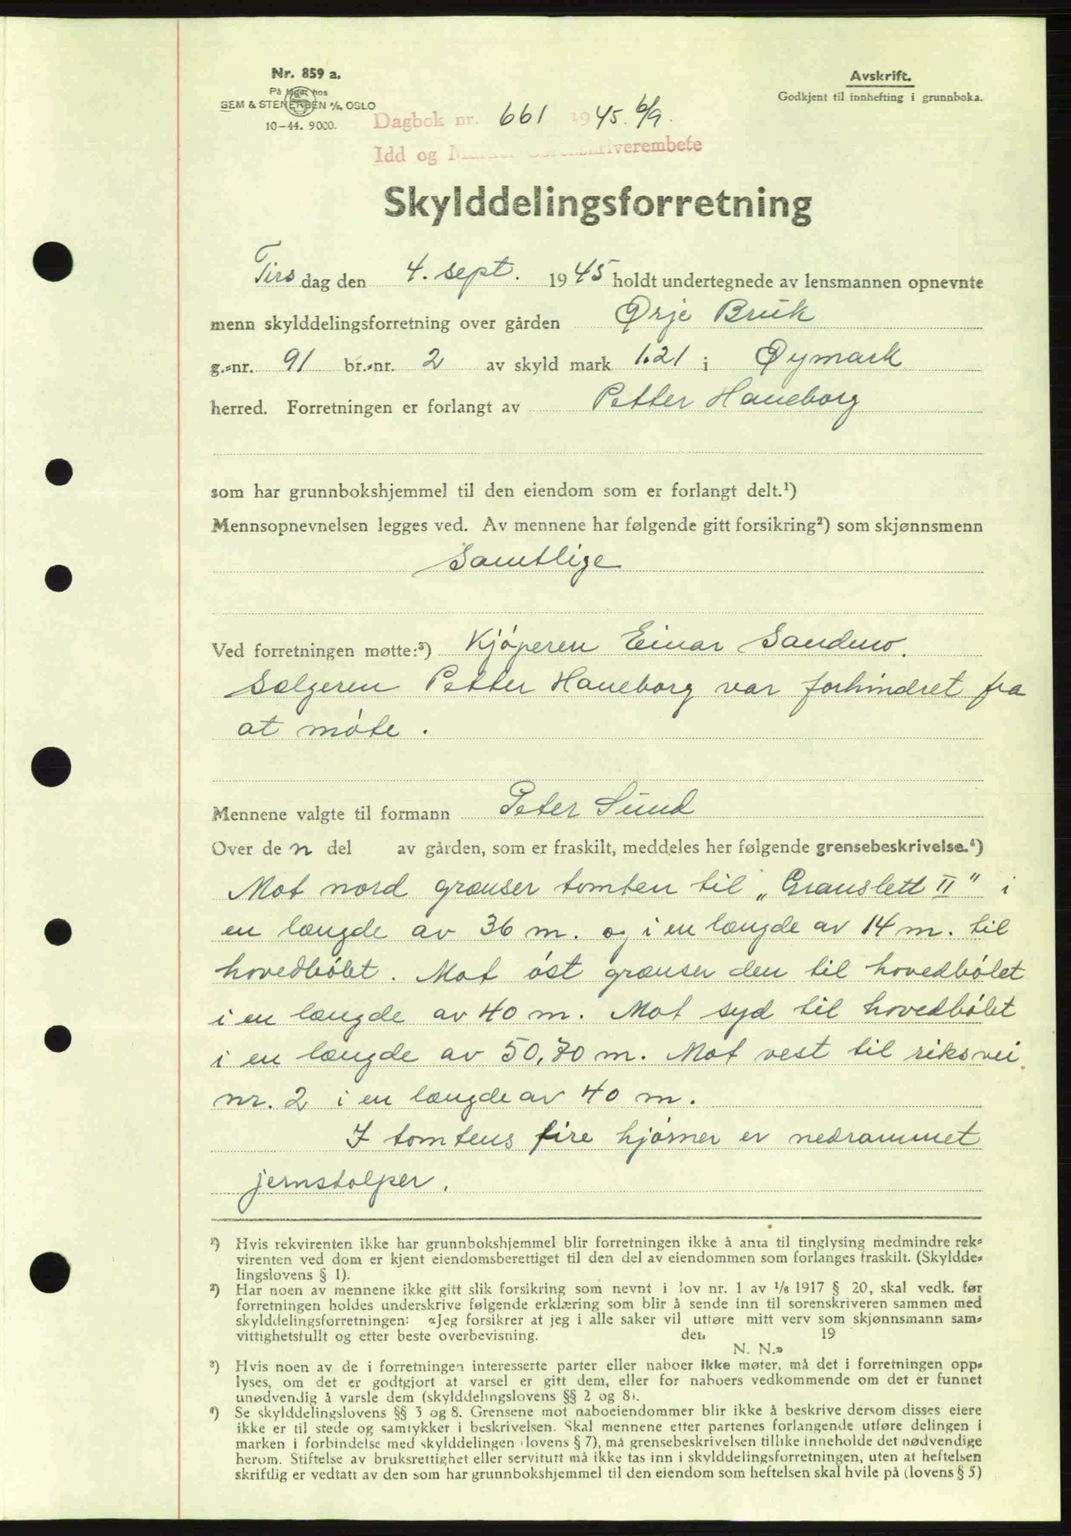 Nr. 859 a.
På lager hos
SEM & STENERSEN A/S, OSLO
10-44. 9000.
Avskrift.
Godkjent til innhefting i grunnboka.
Dagbok nr. 661 1945. 6/9.
Idd og Marker Sorenskriverembete
Skylddelingsforretning
Tirsdag den 4. sept. 1945 holdt undertegnede av lensmannen opnevnte
menn skylddelingsforretning over gården Ørje Bruk
g.-nr. 91 br.-nr. 2 av skyld mark 1.21 i Øymark
herred. Forretningen er forlangt av Petter Haneborg
som har grunnbokshjemmel til den eiendom som er forlangt delt.¹)
Mennsopnevnelsen legges ved. Av mennene har følgende gitt forsikring²) som skjønnsmenn
Samtlige
Ved forretningen møtte:³) Kjøperen Einar Sandmo.
Selgeren Petter Haneborg var forhindret fra
at møte.
Mennene valgte til formann Peter Sund
Over den del av gården, som er fraskilt, meddeles her følgende grensebeskrivelse.⁴)
Mot nord grænser tomten til „Granslett II" i
en længde av 36 m. og i en længde av 14 m. til
hovedbølet. Mot øst grænser den til hovedbølet
i en længde av 40 m. Mot syd til hovedbølet
i en længde av 50,70 m. Mot vest til riksvei
nr. 2 i en længde av 40 m.
I tomtens fire hjørner er nedrammet
jernstolper.
¹) Hvis rekvirenten ikke har grunnbokshjemmel blir forretningen ikke å anta til tinglysing medmindre rek-
virenten ved dom er kjent eiendomsberettiget til den del av eiendommen som forlanges fraskilt. (Skyldde-
lingslovens § 1).
²) Har noen av mennene ikke gitt slik forsikring som nevnt i lov nr. 1 av 1/6 1917 § 20, skal vedk. før
forretningen holdes underskrive følgende erklæring som blir å sende inn til sorenskriveren sammen med
skylddelingsforretningen: «Jeg forsikrer at jeg i alle saker vil utføre mitt verv som skjønnsmann sam-
vittighetsfullt og etter beste overbevisning. den 19
N. N.»
³) Hvis noen av de i forretningen interesserte parter eller naboer ikke møter, må det i forretningen opp-
lyses, om det er godtgjort at varsel er gitt dem, eller for naboers vedkommende om det er funnet
unødvendig å varsle dem (skylddelingslovens §§ 2 og 8).
⁴) Se skylddelingslovens §§ 3 og 8. Grensene mot naboeiendommer blir ikke å beskrive dersom disses eiere
ikke er til stede og samtykker i beskrivelsen. Skal mennene etter partenes forlangende utføre delingen i
marken i forbindelse med skylddelingen (lovens § 7), må grensebeskrivelsen tillike inneholde det nødvendige
herom. Stiftelse av bruksrettighet eller servitutt må ikke tas inn i skylddelingsforretningen, uten at heftelsen
skriftlig er vedtatt av den som har grunnbokshjemmel til den eiendom som heftelsen skal hvile på (lovens § 5)